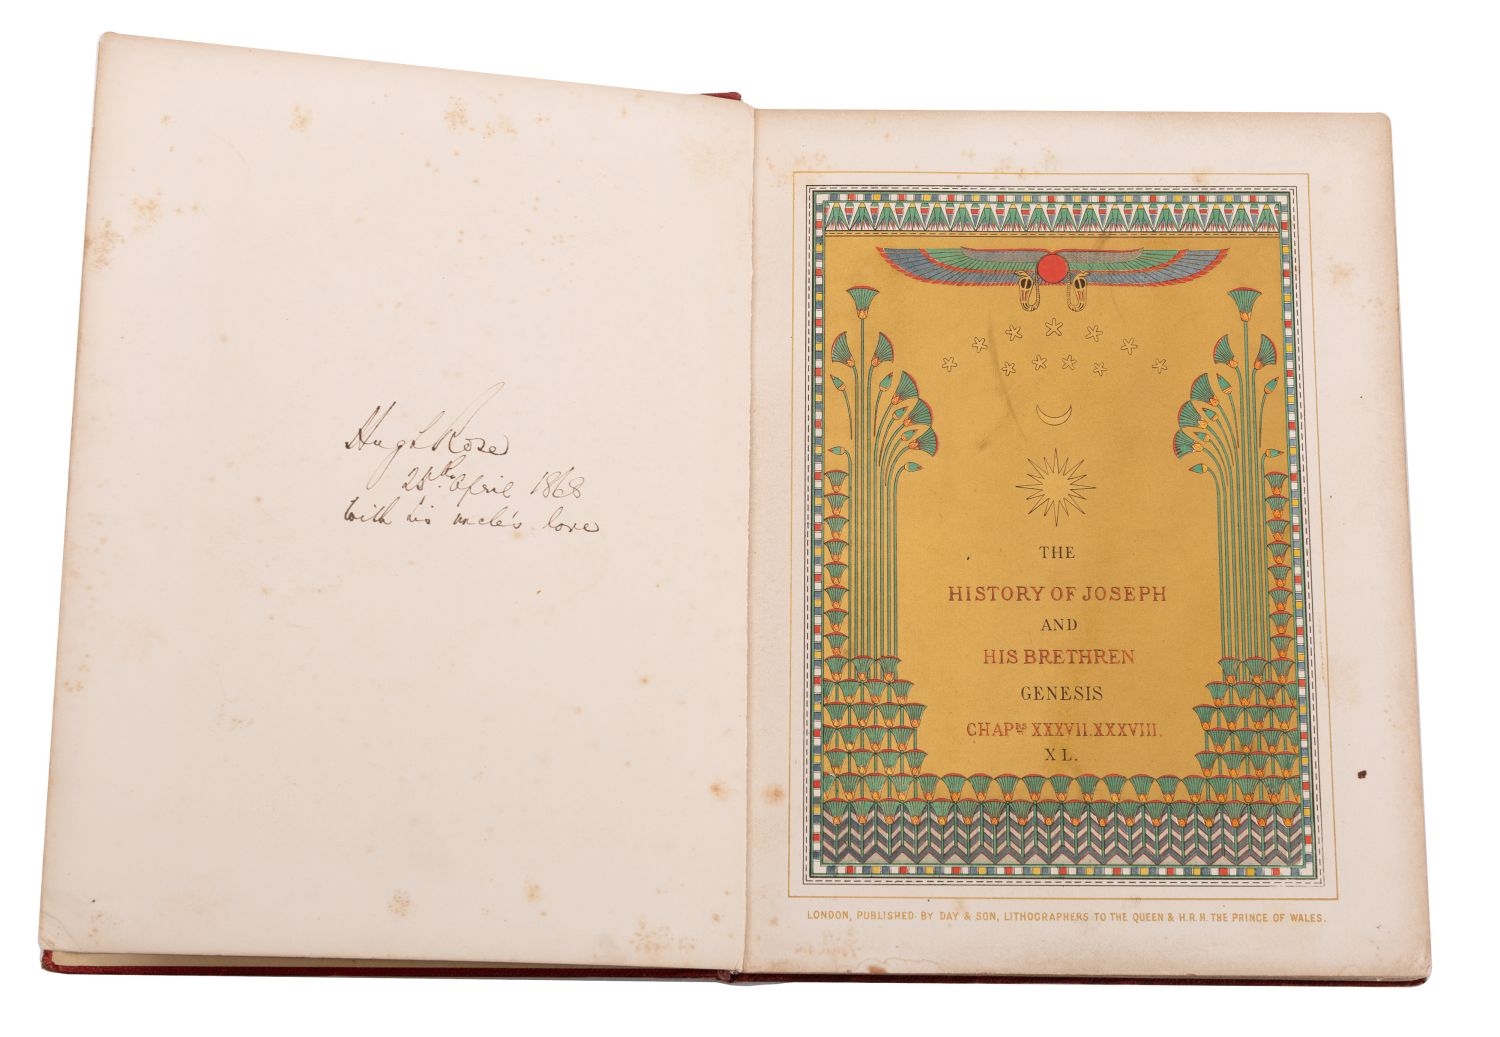 Hugh Rose
25th April 1868
with his uncle's love
THE
HISTORY OF JOSEPH
AND
HIS BRETHREN
GENESIS
CHAPRS XXXVII.XXXVIII.
XL.
LONDON, PUBLISHED BY DAY & SON, LITHOGRAPHERS TO THE QUEEN & H.R.H. THE PRINCE OF WALES.